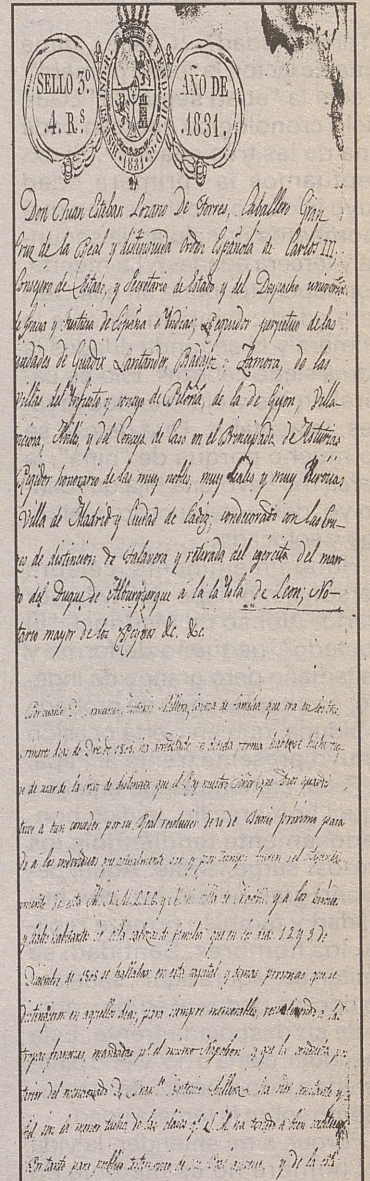 SELLO 3º
4. Rˢ
AÑO DE
1831.
1831
Don Juan Esteban Lozano De Torres, Caballero Gran
Cruz de la Real y distinguida orden Española de Carlos III,
Consejero de Estado, y Secretario de Estado y del Despacho universal
de Gracia y Justicia de España e Yndias, Regidor perpetuo de las
ciudades de Guadix Santander, Badajoz, y Zamora, de las
villas del Ynfiesto y concejo de Piloña, de la de Gijon, Villa-
viciosa, y del Concejo de Caso en el Principado de Asturias
Regidor honorario de las muy nobles, muy Leales y muy Heroicas
Villa de Madrid y Ciudad de Cádiz; condecorado con las Cru-
ces de distincion de Talavera y retirada del egército del man-
do del Duque de Alburquerque á la Ysla de Leon; No-
tario mayor de los Reynos &c. &c.
Por cuanto D. Francisco Antonio cabeza de familia que era en los tres
primeros dias de Dre de 1808 ha acreditado en debida forma
de usar de la cruz de distincion que el Rey nuestro Señor (que Dios guarde)
tuvo a bien conceder por su Real resolucion de 10 de Junio próximo pasa-
do a los individuos que actualmente son y por tiempo fueren del Ayunta-
miento de esta M. N. M. L. I. C. y villa de Madrid, y a los
y habitantes de ella cabezas de familia que en los dias 1 2 y 3 de
Diciembre de 1808 se hallaban en esta capital y demas personas que se
distinguieron en aquellos dias, para siempre memorables, a las
tropas francesas, mandadas pr el mismo Napoleon y que la conducta pos-
terior del mencionado D. Franco Antonio ha sido constante y
fiel, sin la menor tacha de las clases qe S. M. ha tenido a bien
Por tanto para público testimonio de su Real aprecio, y de la